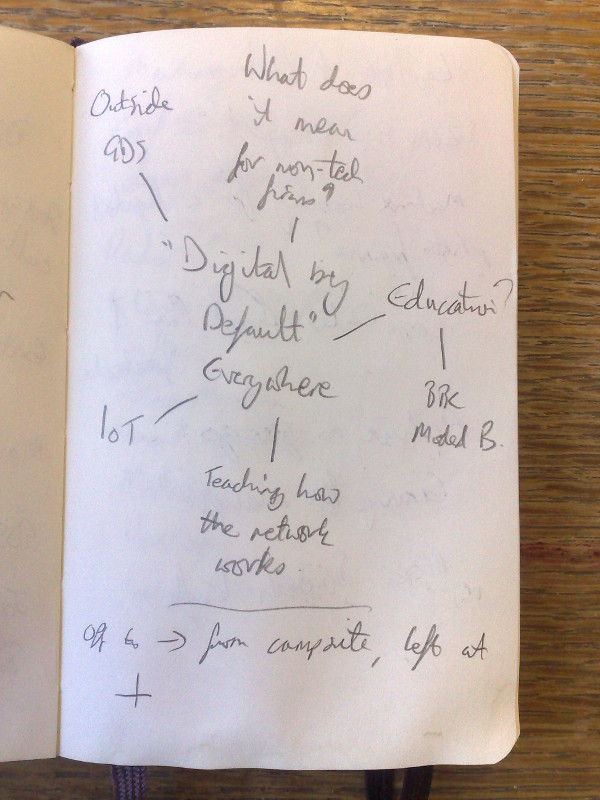 What does
it mean
for non-tech
firms?
Outside
GDS
"Digital by
Default"
Everywhere
Education?
BBC
Model B.
IoT
Teaching how
the network
works.
Off to → from campsite, left at